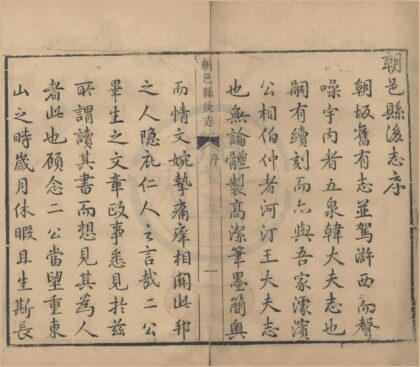 朝邑縣後志序
朝坂舊有志並駕滸西而聲
噪宇內者五泉韓大夫志也
嗣有續刻而亦與吾家濛濱
公相伯仲者河汀王大夫志
也無論體製高潔筆墨簡奧
朝邑縣後志
序
一
而情文婉摯痛癢相關此邦
之人隱庇仁人之言哉二公
畢生之文章政事悉見於茲
所謂讀其書而想見其為人
者此也顧念二公當望重東
山之時歲月休暇且生斯長